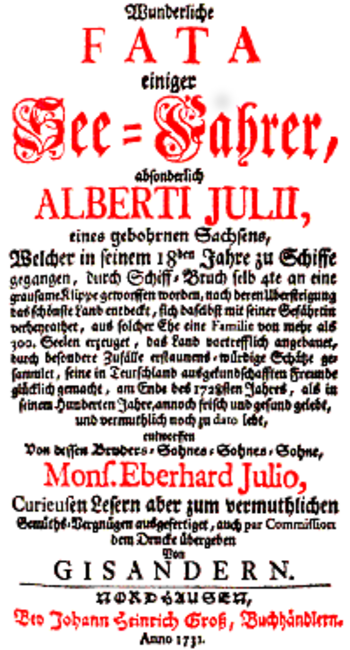 Wunderliche
FATA
einiger
See=Fahrer,
absonderlich
ALBERTI JULII,
eines gebohrnen Sachsens,
Welcher in seinem 18den Jahre zu Schiffe
gegangen, durch Schiff=Bruch selb 4te an eine
grausame Klippe geworffen worden, nach deren Übersteigung
das schönste Land entdeckt, sich daselbst mit seiner Gefährtin
verheyrathet, aus solcher Ehe eine Familie von mehr als
300. Seelen erzeuget, das Land vortrefflich angebauet,
durch besondere Zufälle erstaunens=würdige Schätze ge=
sammlet, seine in Teutschland ausgekundschafften Freunde
glücklich gemacht, am Ende des 1728sten Jahres, als in
seinem Hunderten Jahre, annoch frisch und gesund gelebt,
und vermuthlich noch zu dato lebt,
entworffen
Von dessen Bruders=Sohnes=Sohnes=Sohne,
Mons. Eberhard Julio,
Curieusen Lesern aber zum vermuthlichen
Gemüths=Vergnügen ausgefertiget, auch par Commission
dem Drucke übergeben
Von
GISANDERN.
NORDHAUSEN,
Bey Johann Heinrich Groß, Buchhändlern.
Anno 1731.